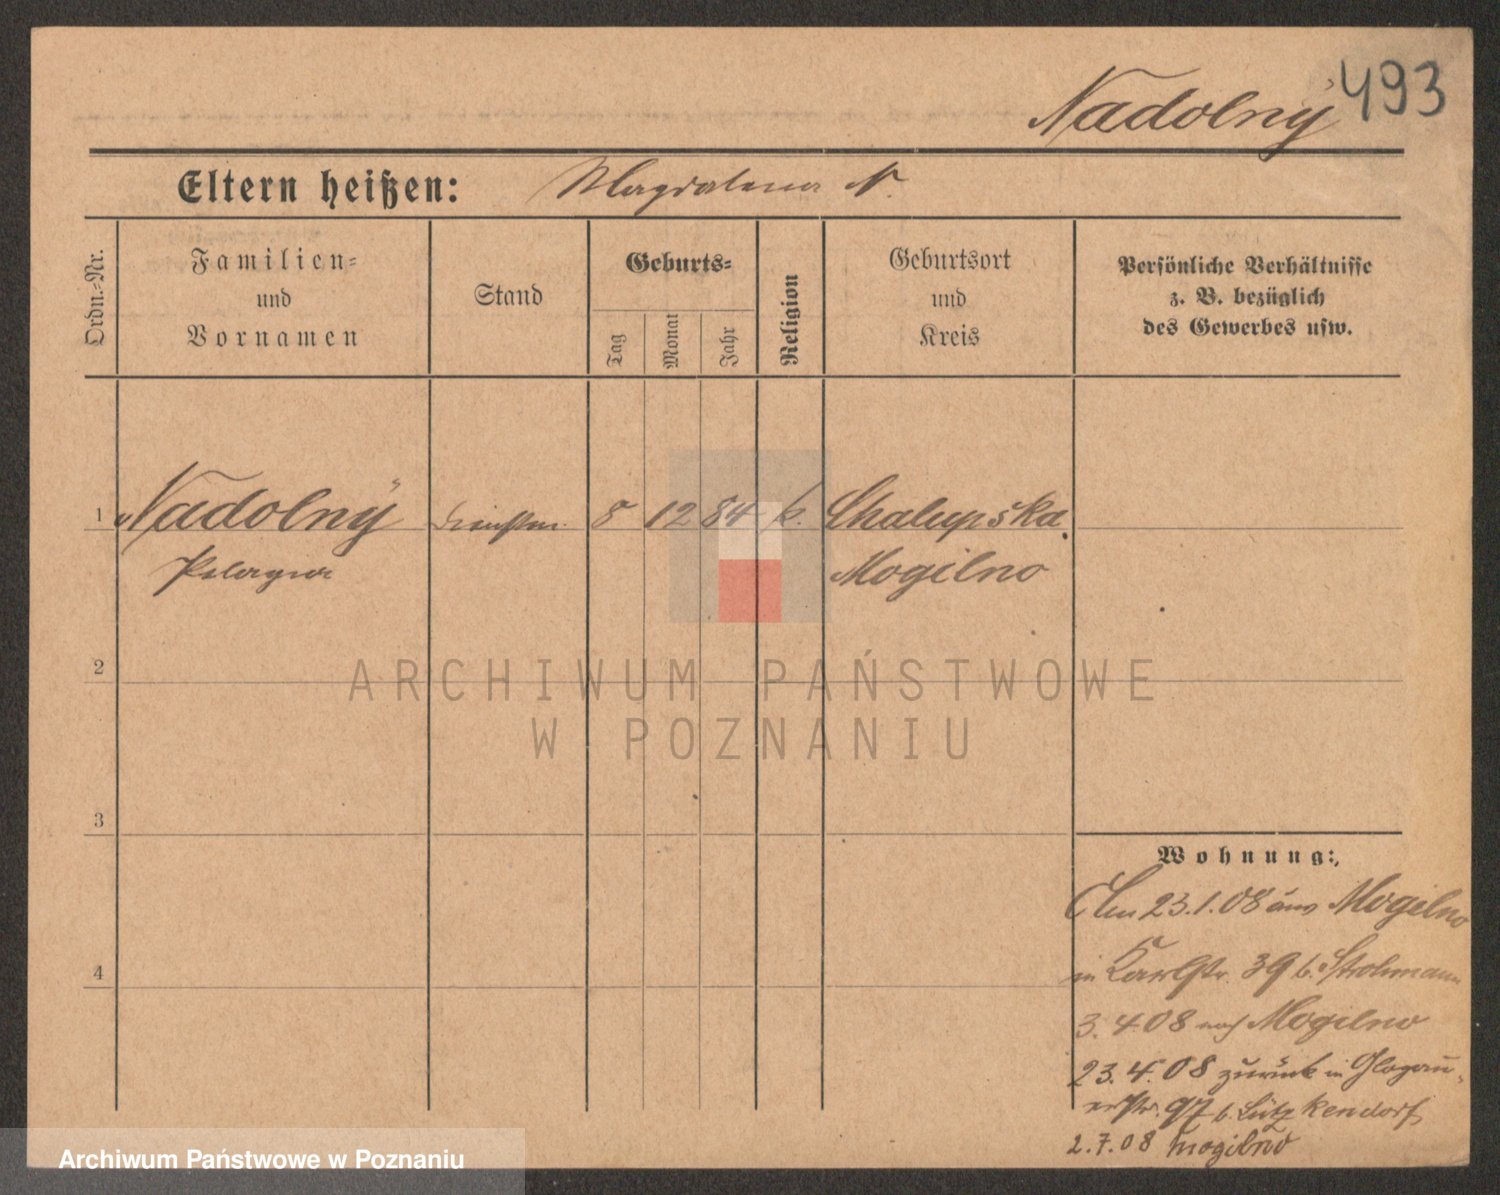 Nadolny 493
Eltern heißen: Magdalena N.
Ordn.-Nr.
Familien-
und
Vornamen
Stand
Geburts-
Tag
Monat
Jahr
Religion
Geburtsort
und
Kreis
Persönliche Verhältnisse
z. B. bezüglich
des Gewerbes usw.
1 Nadolny 8 12 84 k. Chalupska
Pelagia Mogilno
2
3
4
Wohnung:
Am 23.1.08 aus Mogilno
in Karlstr. 39 b. Strohmann
3.4.08 nach Mogilno
23.4.08 zurück in Glogau-
erstr. 97 b. Lützkendorf
2.7.08 Mogilno
ARCHIWUM PAŃSTWOWE
W POZNANIU
Archiwum Państwowe w Poznaniu